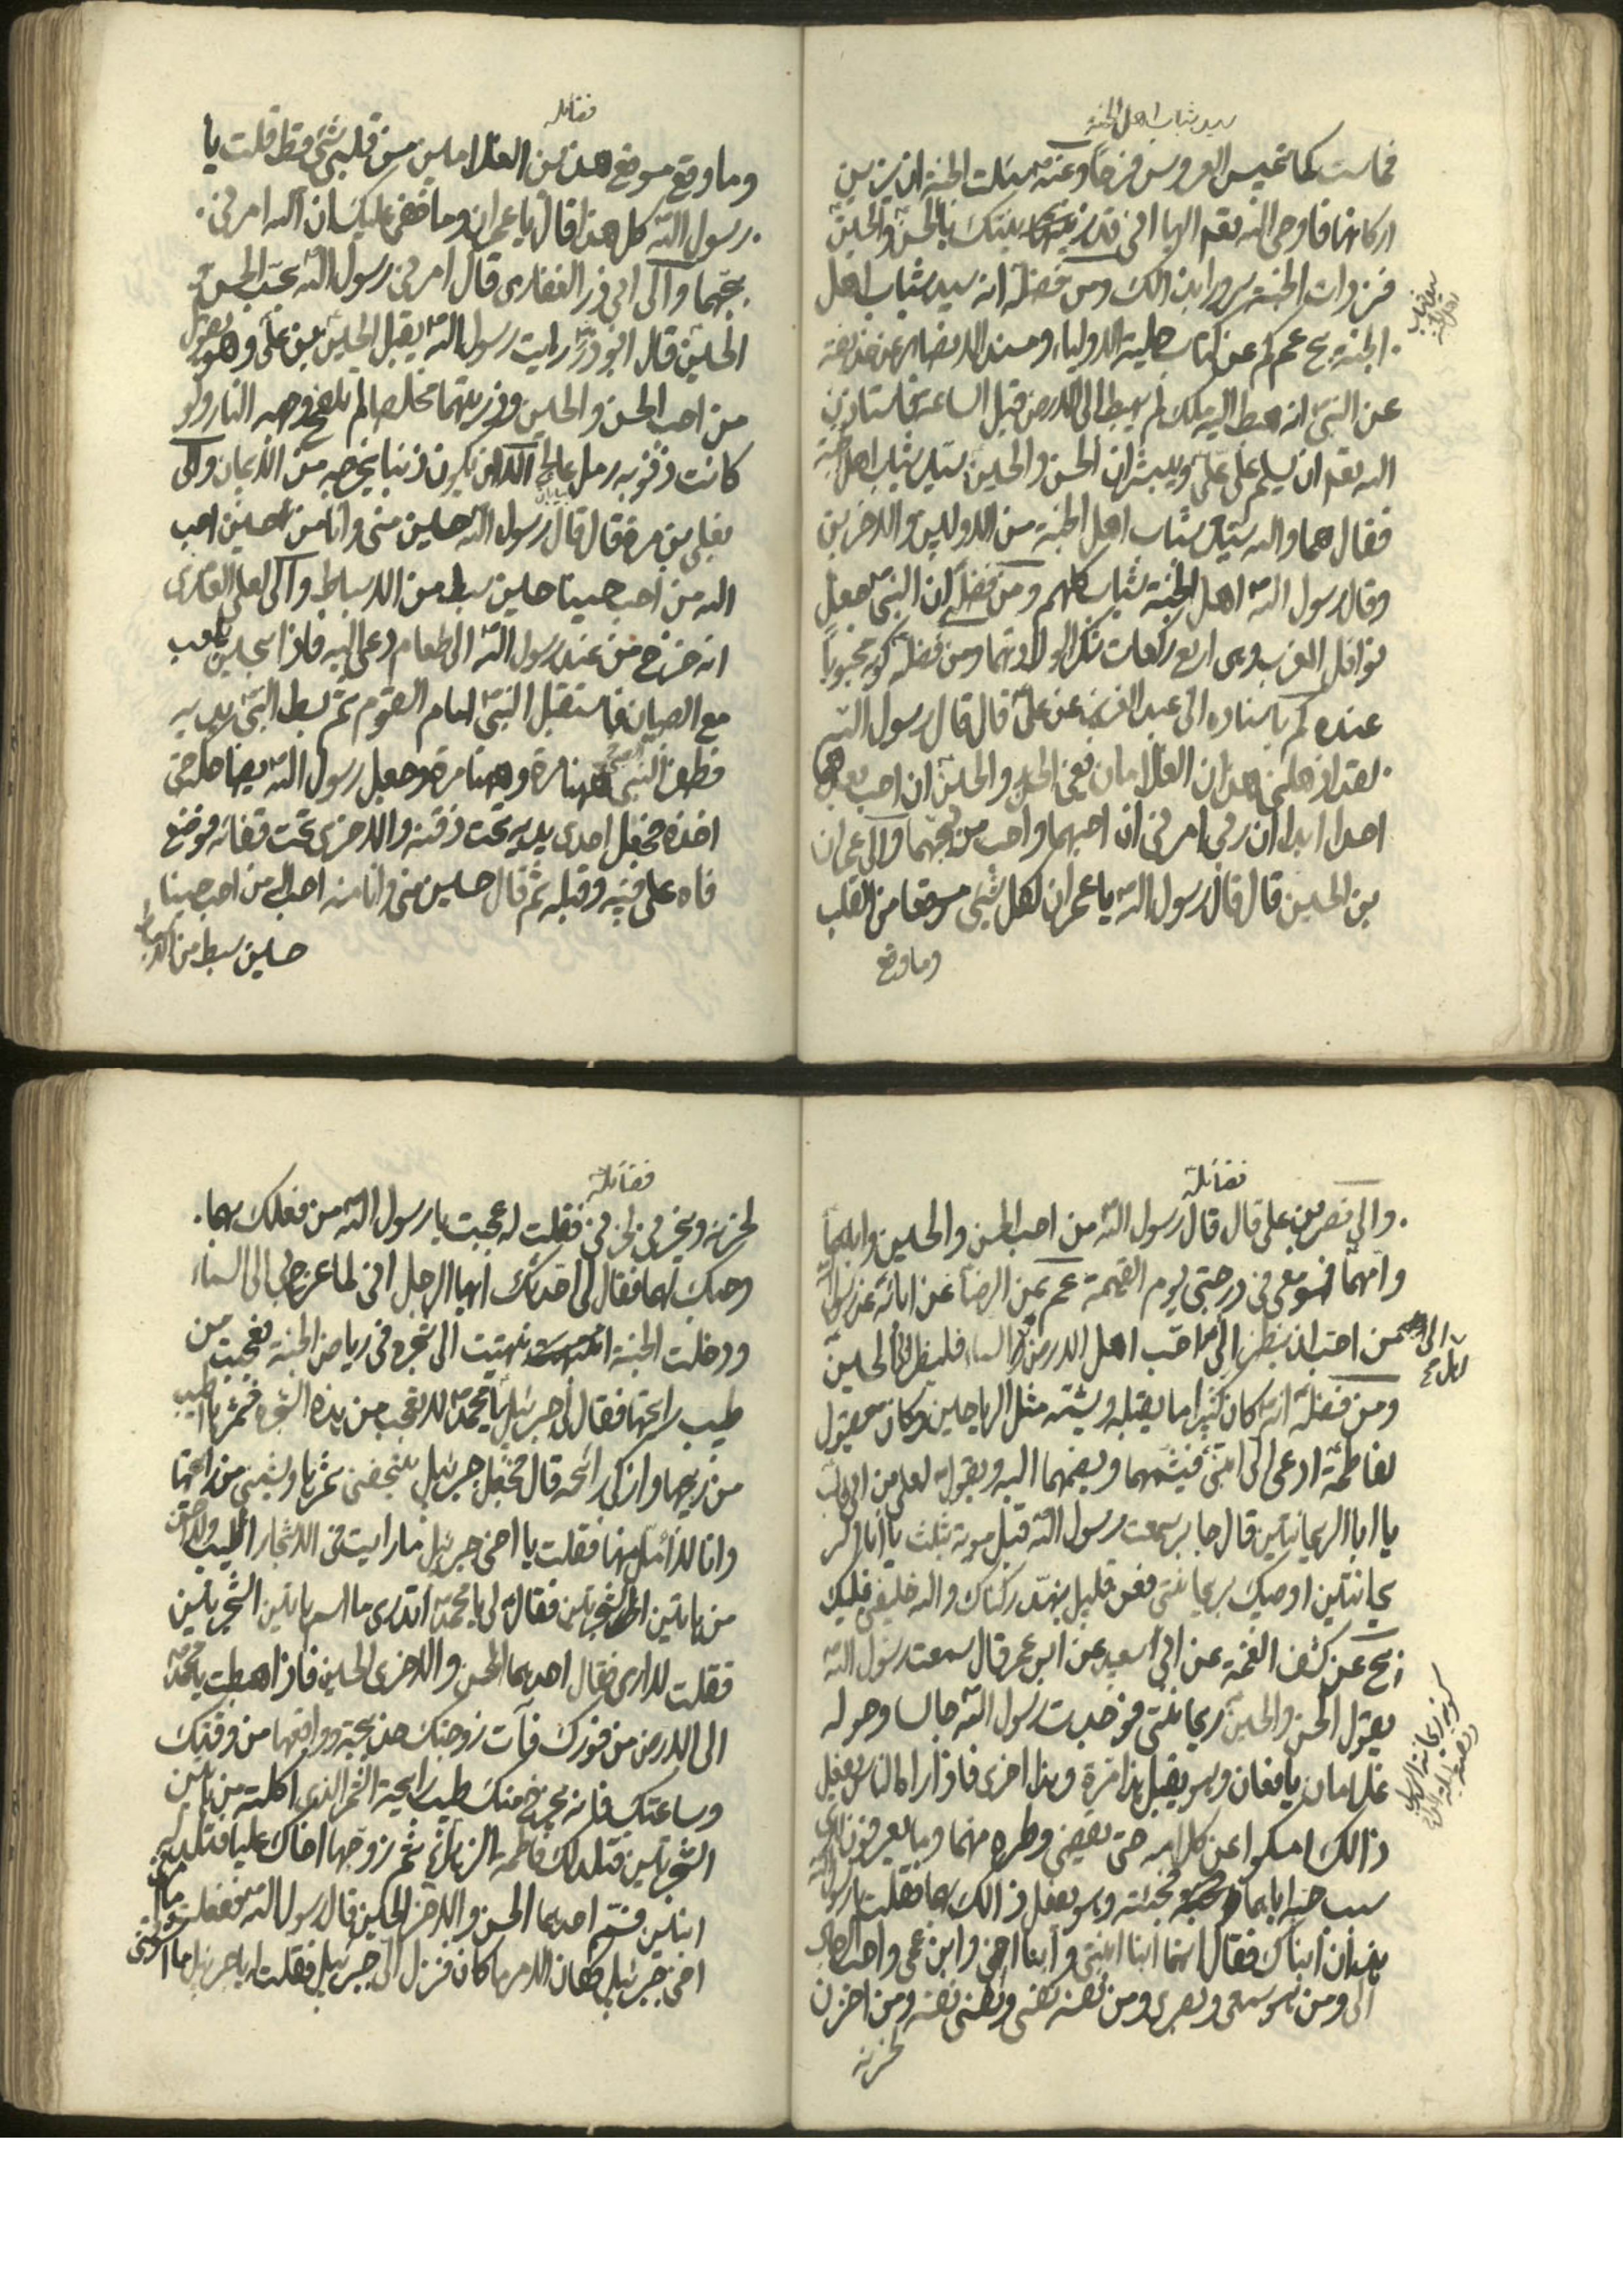 سيد شباب اهل الجنة
فماست كما تميس العروس فرحا وعنه سئلت الجنة ان يزين
اركانها فاوحى الله تعم اليها انى قد زينتك بالحسن والحسين
فزدات الجنة سرورا بذالك ومن فضله انه سيد شباب اهل
الجنة عن كتاب حلية الاولياء ومسند الانصار عن حذيفة
عن النبى انه هبط اليه ملك لم يهبط الى الارض قبل الساعة فاستاذن
الله تعم ان يسلم على على ويبشر ان الحسن والحسين سيدا شباب اهل الجنة
فقال هما والله سيدا شباب اهل الجنة من الاولين والاخرين
وقال رسول الله اهل الجنة شباب كلهم ومن فضله ان النبى جعل
نوافل المغرب وهى اربع ركعات شكرا لولادتهما ومن فضله كونه محبوبا
عنده باسناده الى عبد العزيز عن على قال قال رسول الله
لقد اذهلنى هذان الغلامان يعنى الحسن والحسين ان احب بعدهما
احدا ابدا ان ربى امرنى ان احبهما واحب من يحبهما والى عمران
بن الحصين قال قال رسول الله يا عمران لكل شئ موقعا من القلب
وما وقع
فضائله
وما وقع موقع هذين الغلامين من قلبى شئ قط قلت يا
رسول الله كل هذا قال يا عمران وما خفى عليك ان الله امرنى
بحبهما والى ابى ذر الغفارى قال امرنى رسول الله بحب الحسن و
الحسين قال ابو ذر رايت رسول الله يقبل الحسين بن على وهو يقول
من احب الحسن والحسين وذريتهما مخلصا لم تلفح وجهه النار ولو
كانت ذنوبه رمل عالج الا ان يكون ذنبا يخرجه من الايمان والى
يعلى بن مرة قال قال رسول الله حسين منى وانا من حسين احب
الله من احب حسينا حسين سبط من الاسباط والى يعلى العامرى
انه خرج من عند رسول الله الى طعام دعى اليه فاذا بحسين يلعب
مع الصبيان فاستقبل النبى امام القوم ثم بسط النبى يديه
فطفر الصبى ههنا مرة وههنا مرة وجعل رسول الله يضاحكه حتى
اخذه فجعل احدى يديه تحت ذقنه والاخرى تحت قفائه فوضع
فاه على فيه وقبله ثم قال حسين منى وانا منه احب الله من احب حسينا
حسين سبط من الاسباط
فضائله
والى نصر بن على قال قال رسول الله من احب الحسن والحسين وابا هما
وامهما فهو معى فى درجتى يوم القيمة عن الرضا عن ابائه عن رسول الله
من احب ان ينظر الى احب اهل الارض الى اهل السماء فلينظر الى الحسين
ومن فضله انه كان كثيرا ما يقبله ويشمه مثل الرياحين وكان يقول
لفاطمة ادعى الى ابنى فيشمهما ويضمهما اليه ويقول لعلى بن ابى طالب
يا ابا الريحانتين قال جابر سمعت رسول الله قبل موته بثلث يا ابا الر
يحانتين اوصيك بريحانتى فعن قليل ينهد ركناك والله خليفتى عليك
عن كشف الغمة عن ابى سعيد عن ابن عمر قال سمعت رسول الله
يقول الحسن والحسين ريحانتى فوجدت رسول الله جالسا وحوله
غلامان يافعان وهو يقبل هذا مرة وهذا اخرى فاذا راه الناس يفعل
ذالك امسكوا عن كلامه حتى يقضى وطره منهما وما يعرفون لاى
سبب حبه اياهما فجئته وهو يفعل ذالك بهما فقلت يا رسول الله
هذان ابناك فقال انهما ابنا ابنتى وابنا اخى وابن عمى واحب الرجال
الى ومن هو سمعى وبصرى ومن نفسه نفسى ونفسى نفسه ومن احزن
لحزنه
فضائله
لحزنه ويحزن لحزنى فقلت له عجبت يا رسول الله من فعلك بهما
وحبك لهما فقال لى احدثك ايها الرجل انى لما عرج بى الى السماء
ودخلت الجنة انتهيت الى شجرة فى رياض الجنة فعجبت من
طيب رائحتها فقال لى جبرئيل يا محمد لا تعجب من هذه الشجرة فثمرها اطيب
من ريحها وازكى رائحة قال فجعل جبرئيل يتحفنى ثمرها ويشمنى من رائحتها
وانا لا امل منها فقلت يا اخى جبرئيل ما رايت فى الاشجار اطيب ولا احسن
من هاتين الشجرتين فقال لى يا محمد اتدرى ما اسم هاتين الشجرتين
فقلت لا ادرى فقال احديهما الحسن والاخرى الحسين فاذا هبطت يا محمد
الى الارض من فورك فآت زوجتك خديجة وواقعها من وقتك
وساعتك فانه يخرج منك طيب رائحة الثمر الذى اكلته من هاتين
الشجرتين فتلد لك فاطمة الزهراء ثم زوجها اخاك عليا فتلد له
ابنين فسم احدهما الحسن والاخر الحسين قال رسول الله ففعلت ما امرنى
اخى جبرئيل فكان الامر ما كان فنزل الى جبرئيل فقلت له يا جبرئيل ما اشوقنى